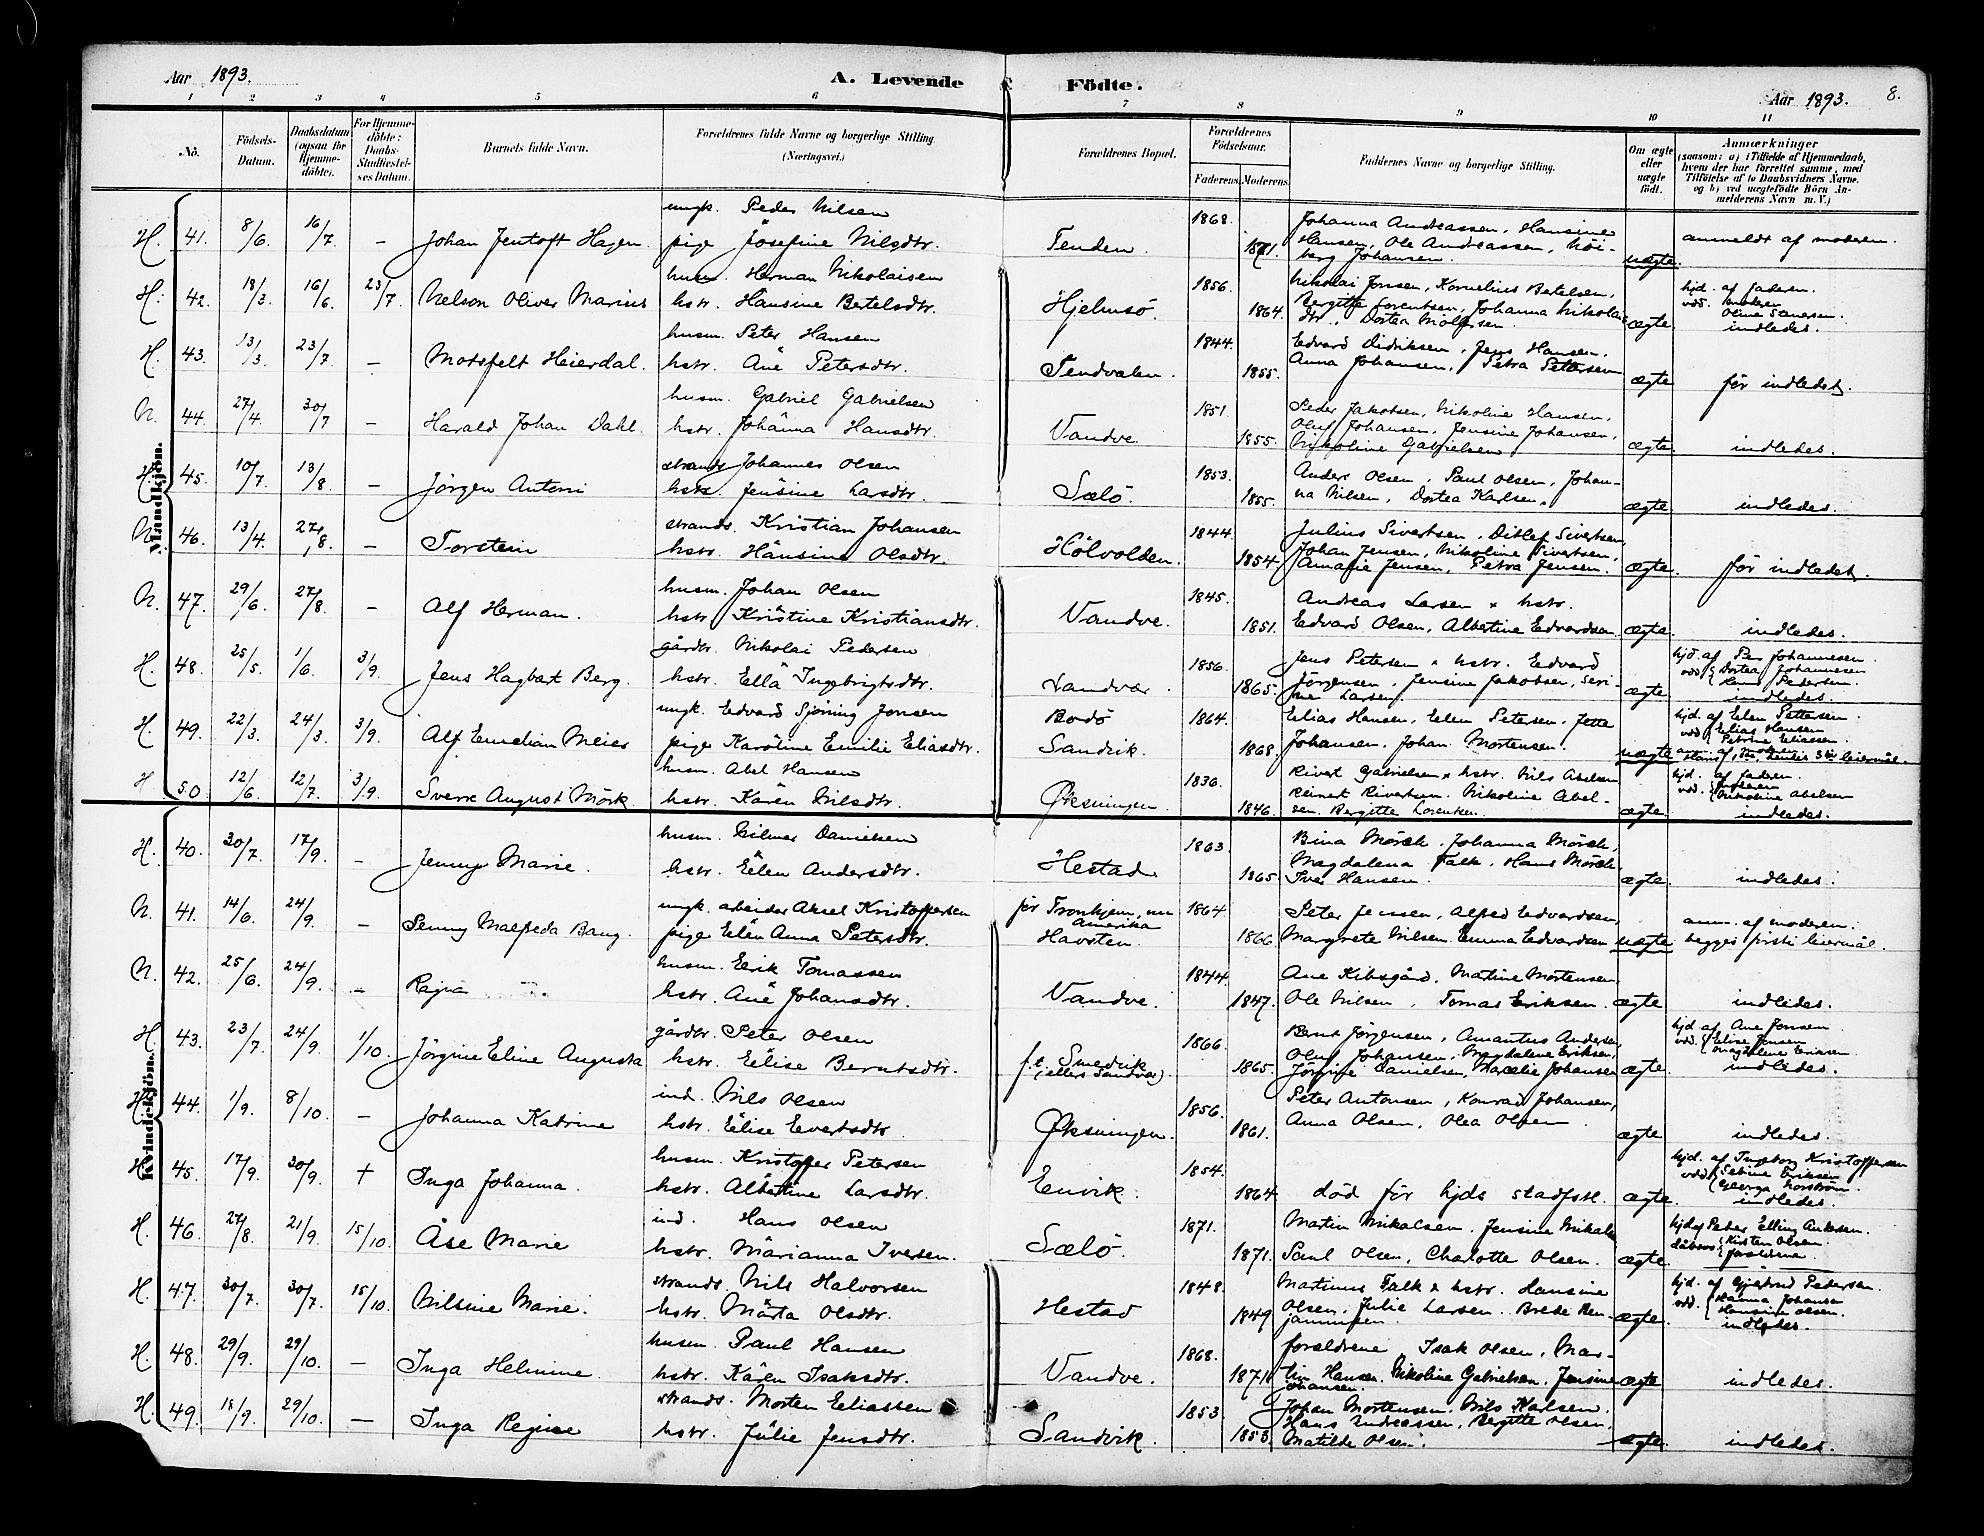 Aar 1893. A. Levende Födte. Aar 1893. 8.
1 2 3 4 5 6 7 8 9 10 11
No. Födsels-Datum. Daabsdatum (ogsaa for Hjemme-döbte). For Hjemme-döbte: Daabs-Stadfæstel-ses Datum. Barnets fulde Navn. Forældrenes fulde Navne og borgerlige Stilling (Næringsvei.) Forældrenes Bopæl. Forældrenes Födselsaar. Faderens. Moderens. Faddernes Navne og borgerlige Stilling. Om ægte eller uægte födt. Anmærkninger (saasom: a) i Tilfælde af Hjemmedaab, hvem der har forrettet samme, med Tilföielse af to Daabsvidners Navne, og b) ved uægtefödte Börn An-melderens Navn m. V.)
Mandkjön.
ungk. Peder Nilsen 1868. Johanna Andreassen, Hansine
H. 41. 8/6 16/7 – Johan Jentoft Hagen. pige Josefine Nilsdtr. Tenden. 1871. Hansen, Ole Andreassen, berg Johansen. uægte. anmeldt af moderen.
husm. Herman Nikolaisen 1856. Nikolai Jensen, Kornelius Bertelsen, hjd. af faderen.
H. 42. 18/3 16/6 23/7 Nelson Oliver Marius hstr. Hansine Bertelsdtr. Hjelmsö. 1864. Bergitte Lorentsen, Johanna Nikolai dtr., Dortea ægte vdd. moderen Oline indledes.
husm. Peter Hansen 1844. Edvard Didriksen, Jens Hansen,
H. 43. 13/3 23/7 – Motsfelt Heierdal. hstr. Ane Petersdtr. Tendvalen. 1855. Anna Johansen, Petra Pettersen ægte för indledet.
husm. Gabriel Gabrielsen 1851. Peder Jakobsen, Nikoline Hansen,
N. 44. 27/4 30/7 – Harald Johan Dahl. hstr. Johanna Hansdtr. Vandve 1855. Oluf Johansen, Jensine Johansen, Nikoline Gabrielsen ægte. indledes.
strands. Johannes Olsen 1853. Anders Olsen, Paul Olsen, Johan-
H. 45. 10/7 13/8 – Jörgen Antoni hstr. Jensine Larsdtr. Sælö. 1855. na Nilsen, Dortea Karlsen. ægte indledes.
strands. Kristian Johansen 1844. Julius Sivertsen, Ditlef Sivertsen,
N. 46. 13/4. 27/8. – Torstein hstr. Hansine Olsdtr. Hölvolden. 1854. Johan Jensen, Nikoline Sivertsen, Jensen, Petra Jensen. ægte. för indledet.
husm. Johan Olsen 1845. Andreas Larsen & hstr.
N. 47. 29/6. 27/8. – Alf Herman. hstr. Kristine Kristiansdtr. Vandve. 1851. Edvard Olsen, Albertine Edvardsen. ægte. indledes.
gårdbr. Nikolai Pedersen 1856. Jens Petersen & hstr. Edvard hjd. af Per Johannesen
H. 48. 25/5. 1/6. 3/9. Jens Hagbart Berg. hstr. Ella Ingebrigtsdtr. Sandvær. 1865. Jörgensen, Jensine Jakobsen, Seri-ne Larsen. ægte vdd. Dortea Johannesen Pedersen. indledes.
ungk. Edvard Sjöning Jensen Bodö 1864. Elias Hansen, Elen Petersen, Jette hjd. af Elen Pettersen.
H. 49. 22/3. 24/3. 3/9. Alf Emelian Meier pige Karoline Emilie Eliasdtr. Sandvik. 1868. Johansen, Johan Mortensen. uægte vdd. Elias Hansen Petrine Eliassen. anm. af moderen. Hans 1ste, hendes 3die leiermål.
husm. Abel Hansen 1836. Rivert Gabrielsen & hstr. Nils Abelsen hjd. af faderen.
H. 50. 12/6. 12/7. 3/9. Sverre August Mörk hstr. Karen Nilsdtr. Öksningen. 1846. Reinert Rivertsen. Nikoline Abel-sen. Bergitte Lorentsen. ægte. vdd. Nikoline Abelsen indledes.
Kvindekjön.
husm. Hilmer Danielsen 1863. Bina Mörch. Johanna Mörch,
H. 40. 30/7. 17/9. – Jenny Marie. hstr. Elen Andersdtr. Hestad 1865. Magdalena Falk. Hans Mörch, Iver Hansen. ægte. indledes.
ungk. arbeider Aksel Kristoffersen för Tronhjem, nu Amerika 1864. Peter Jensen, Alfred Edvardsen, anm. af moderen.
N. 41. 14/6. 24/9. – Jenny Malfreda Bang. pige Elen Anna Petersdtr. Havsten. 1866 Margrete Nilsen. Emma Edvardsen uægte begges förste leiermål.
husm. Erik Tomassen 1844. Ane Kibsgård. Martine Mortensen.
N. 42. 25/6. 24/9. – Ragna hstr. Ane Johansdtr. Vandve. 1847. Ole Nilsen, Tomas Eriksen. ægte indledes.
gårdbr. Peter Olsen 1866. Bernt Jörgensen, Amantus Andersen hjd. af Ane Jensen
H. 43. 23/7. 24/9. 1/10. Jörgine Eline Augusta hstr. Elise Berntsdtr. f. t. Smedvik (ellers Sandvær) 1865. Oluf Johansen, Magdalene Eriksen, Jörgine Danielsen, Marcelie Johansen ægte vdd. Elise Jensen Magdalene Eriksen. indledes.
ind. Nils Olsen 1856. Peter Antonsen, Konrad Johansen,
H. 44. 1/9. 8/10. – Johanna Katrine hstr. Elise Evertsdtr. Öksningen. 1861. Anna Olsen, Olea Olsen. ægte indledes.
husm. Kristoffer Petersen 1854. hjd. af Ingeborg Kristoffersen
H. 45. 17/9. 30/9. + Inga Johanna. hstr. Albertine Larsdtr. Envik. 1864. död för hjds stadfst. ægte. vdd. Sebine Eriksen Georga Norström. indledes.
ind. Hans Olsen 1871. Martin Mikalsen. Jensine Mikals hjd af Peter Elling Antonsen.
H. 46. 27/8. 21/9. 15/10. Åse Marie hstr. Marianna Iversen. Sælö. 1871. Paul Olsen, Charlotte Olsen. ægte. Kirsten Olsen. forældrene
strands. Nils Halvorsen 1848. Martinus Falk & hstr. Hansine hjd. af Gjertrud Pedersen.
H. 47. 30/7. 30/7. 15/10. Nilsine Marie. hstr. Marta Olsdtr. Hestad 1849 Olsen. Julie Larsen. Brede Ben-jaminsen. ægte. vdd. Hanna Johansen Hansine Olsen. indledes.
husm. Paul Hansen 1868. forældrene, Isak Olsen, Mar-
H. 48. 29/9. 29/10. – Inga Helmine. hstr. Karen Isaksdtr. Vandve. 1871 tin Hansen. Nikoline Gabrielsen. Jensine Johansen. ægte indledes.
strands. Morten Eliassen 1853. Johan Mortensen. Nils Karlsen.
H. 49. 18/9. 29/10. – Inga Regine hstr. Julie Jensdtr. Sandvik. 1853. Hans Andreassen, Bergitte Olsen, Matilde Olsen. ægte. indledes.